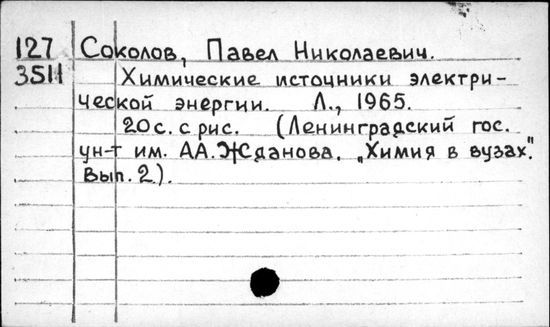 127 Соколов, Павел Николаевич.
3511 Химические источники электри-
ческой энергии. Л., 1965.
20 с. с рис. (Ленинградский гос.
ун-т им. А.А. Жданова. „Химия в вузах".
Вып. 2).